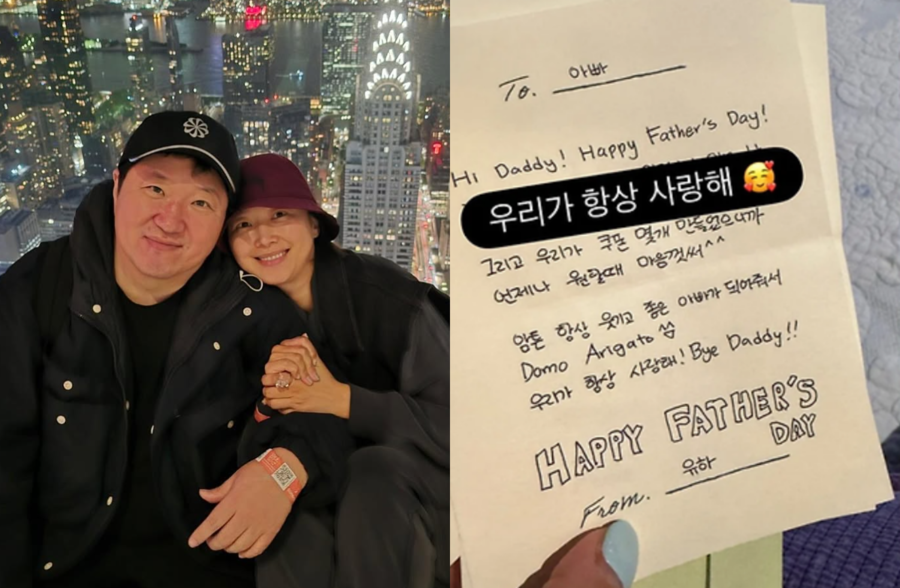 To. 아빠
Hi Daddy! Happy Father's Day!
우리가 항상 사랑해 🥰
그리고 우리가 쿠폰 몇개 만들었으니까
언제나 원할때 마음껏써^^
암튼 항상 웃기고 좋은 아빠가 되어주서
Domo Arigato
우리가 항상 사랑해! Bye Daddy!!
HAPPY FATHER'S
DAY
From. 유하